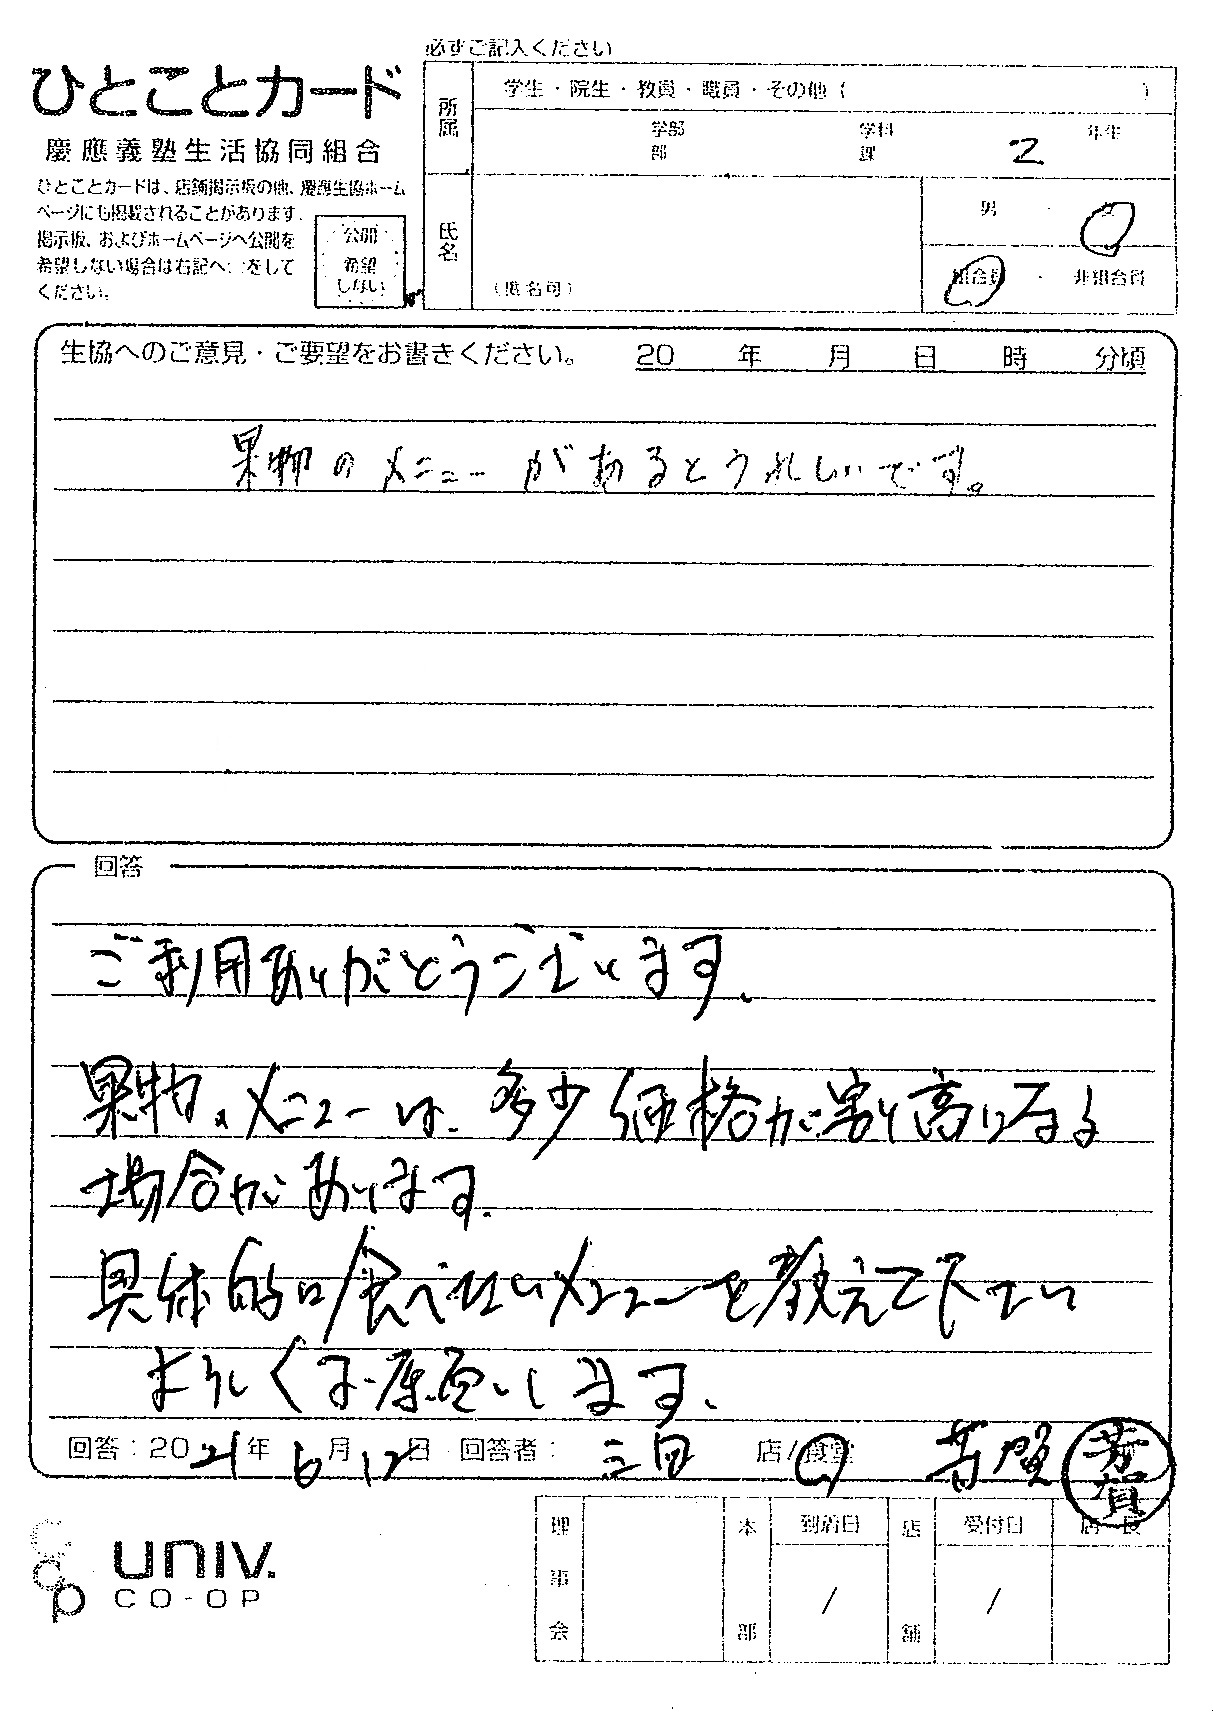 必ずご記入ください
ひとことカード
慶應義塾生活協同組合
ひとことカードは、店舗掲示板の他、慶應生協ホーム
ページにも掲載されることがあります。
掲示板、およびホームページへ公開を
希望しない場合は右記へ をして
ください。
公開
希望
しない
所属
学生・院生・教員・職員・その他（ ）
学部 学科 2 年生
部 課
氏名
（匿名可）
男 ・ 女
組合員 ・ 非組合員
生協へのご意見・ご要望をお書きください。 20 年 月 日 時 分頃
果物のメニューがあるとうれしいです。
回答
ご利用ありがとうございます。
果物のメニューは、多少価格が割り高になる
場合があります。
具体的に食べたいメニューを教えて下さい
よろしくお願いします。
回答：2021年 6月12日 回答者： 三田 店/食堂 芳賀 芳賀
理事会 本部 到着日 店舗 受付日 店長
/ /
UNIV.
CO-OP